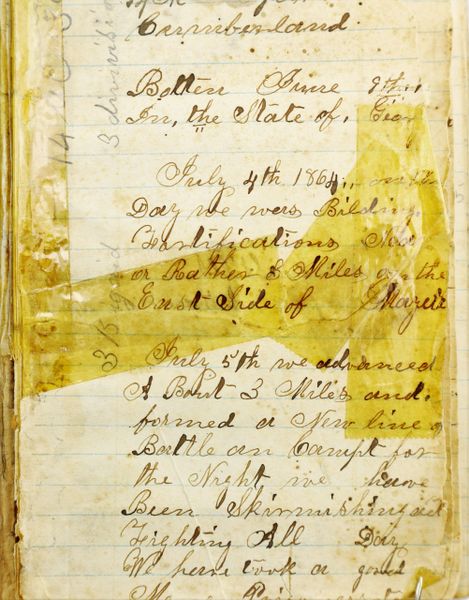 Cumberland.
Botten June 9th,
In, the State of, Geor
July 4th 1864, on the
Day we wers Bilding
Fortifications
or Rather 8 Miles on the
East Side of Mariet
July 5th we advanced
A Bout 3 Miles and.
formed a New line o
Battle an Campt for
the Night we have
Been Skirmishing
Fighting All Day
We have took a good
Prisoners
3 division
14
3 Brigaid